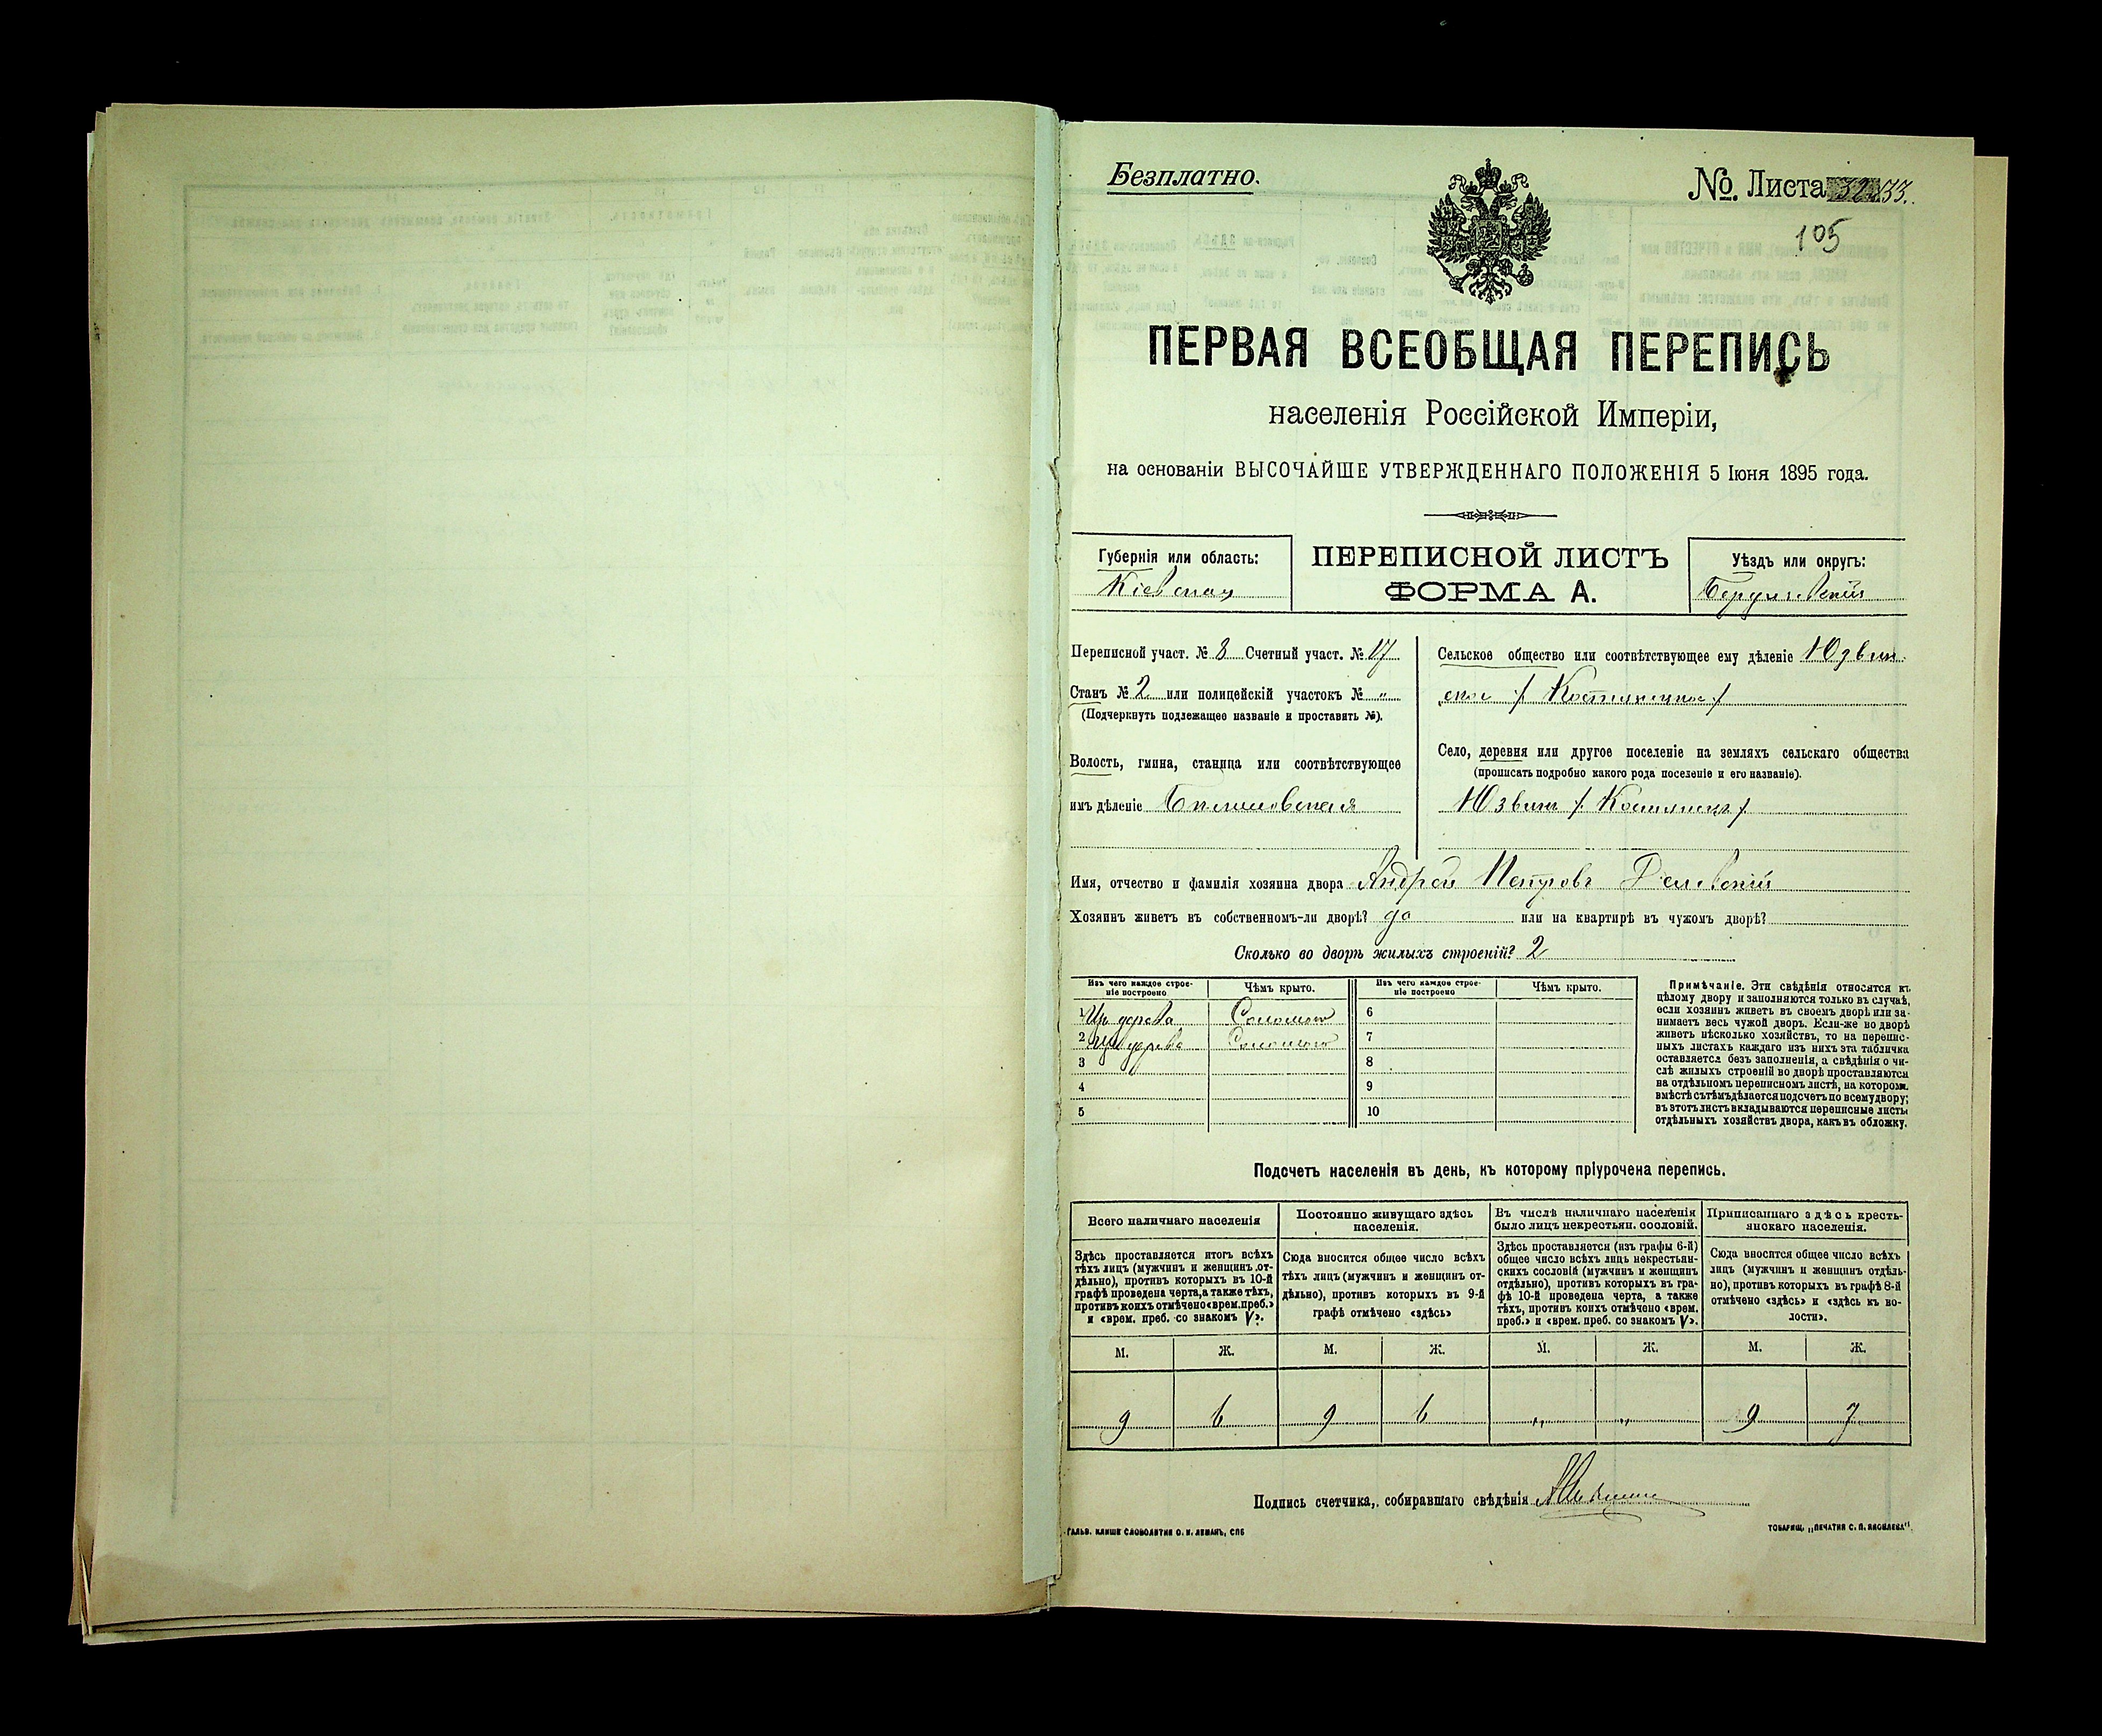 Безплатно.
№. Листа 33.
105
ПЕРВАЯ ВСЕОБЩАЯ ПЕРЕПИСЬ
населенія Россійской Имперіи,
на основаніи ВЫСОЧАЙШЕ УТВЕРЖДЕННАГО ПОЛОЖЕНІЯ 5 Іюня 1895 года.
Губернія или область:
Кіевская
ПЕРЕПИСНОЙ ЛИСТЪ
ФОРМА А.
Уѣздъ или округъ:
Бердичевскій
Переписной участ. № 8 Счетный участ. № 17
Станъ № 2 или полицейскій участокъ № „
(Подчеркнуть подлежащее названіе и проставить №).
Волость, гмина, станица или соотвѣтствующее
имъ дѣленіе
Сельское общество или соотвѣтствующее ему дѣленіе Юзвин-
ское / Костянецкое /
Село, деревня или другое поселеніе на земляхъ сельскаго общества
(прописать подробно какого рода поселеніе и его названіе).
Юзвинъ / Костянецъ /
Имя, отчество и фамилія хозяина двора Андрей Петровъ
Хозяинъ живетъ въ собственномъ-ли дворѣ? да или на квартирѣ въ чужомъ дворѣ?
Сколько во дворѣ жилыхъ строеній? 2
Изъ чего каждое строе-
ніе построено
Чѣмъ крыто.
Изъ чего каждое строе-
ніе построено
Чѣмъ крыто.
1 Изъ дерева Соломою 6
2 Изъ дерева Соломою 7
3 8
4 9
5 10
Примѣчаніе. Эти свѣдѣнія относятся къ
цѣлому двору и заполняются только въ случаѣ,
если хозяинъ живетъ въ своемъ дворѣ или за-
нимаетъ весь чужой дворъ. Если-же во дворѣ
живетъ нѣсколько хозяйствъ, то на перепис-
ныхъ листахъ каждаго изъ нихъ эта табличка
оставляется безъ заполненія, а свѣдѣнія о чи-
слѣ жилыхъ строеній во дворѣ проставляются
на отдѣльномъ переписномъ листѣ, на которомъ
вмѣстѣ съ тѣмъ дѣлается подсчетъ по всему двору;
въ этотъ листъ вкладываются переписные листы
отдѣльныхъ хозяйствъ двора, какъ въ обложку.
Подсчетъ населенія въ день, къ которому пріурочена перепись.
Всего наличнаго населенія
Здѣсь проставляется итогъ всѣхъ
тѣхъ лицъ (мужчинъ и женщинъ от-
дѣльно), противъ которыхъ въ 10-й
графѣ проведена черта, а также тѣхъ,
противъ коихъ отмѣчено «врем. преб.»
и «врем. преб. со знакомъ V».
Постоянно живущаго здѣсь
населенія.
Сюда вносится общее число всѣхъ
тѣхъ лицъ (мужчинъ и женщинъ от-
дѣльно), противъ которыхъ въ 9-й
графѣ отмѣчено «здѣсь»
Въ числѣ наличнаго населенія
было лицъ некрестьян. сословій.
Здѣсь проставляется (изъ графы 6-й)
общее число всѣхъ лицъ некрестьян-
скихъ сословій (мужчинъ и женщинъ
отдѣльно), противъ которыхъ въ гра-
фѣ 10-й проведена черта, а также
тѣхъ, противъ коихъ отмѣчено «врем.
преб.» и «врем. преб. со знакомъ V».
Приписаннаго здѣсь кресть-
янскаго населенія.
Сюда вносится общее число всѣхъ
лицъ (мужчинъ и женщинъ отдѣль-
но), противъ которыхъ въ графѣ 8-й
отмѣчено «здѣсь» и «здѣсь къ во-
лости».
М. Ж. М. Ж. М. Ж. М. Ж.
9 6 9 6 „ „ 9 7
Подпись счетчика, собиравшаго свѣдѣнія
ГАЛЬВ. КЛИШЕ СЛОВОЛИТНИ О. И. ЛЕМАНЪ, СПБ
ТОВАРИЩ. „ПЕЧАТНЯ С. П. ЯКОВЛЕВА“.